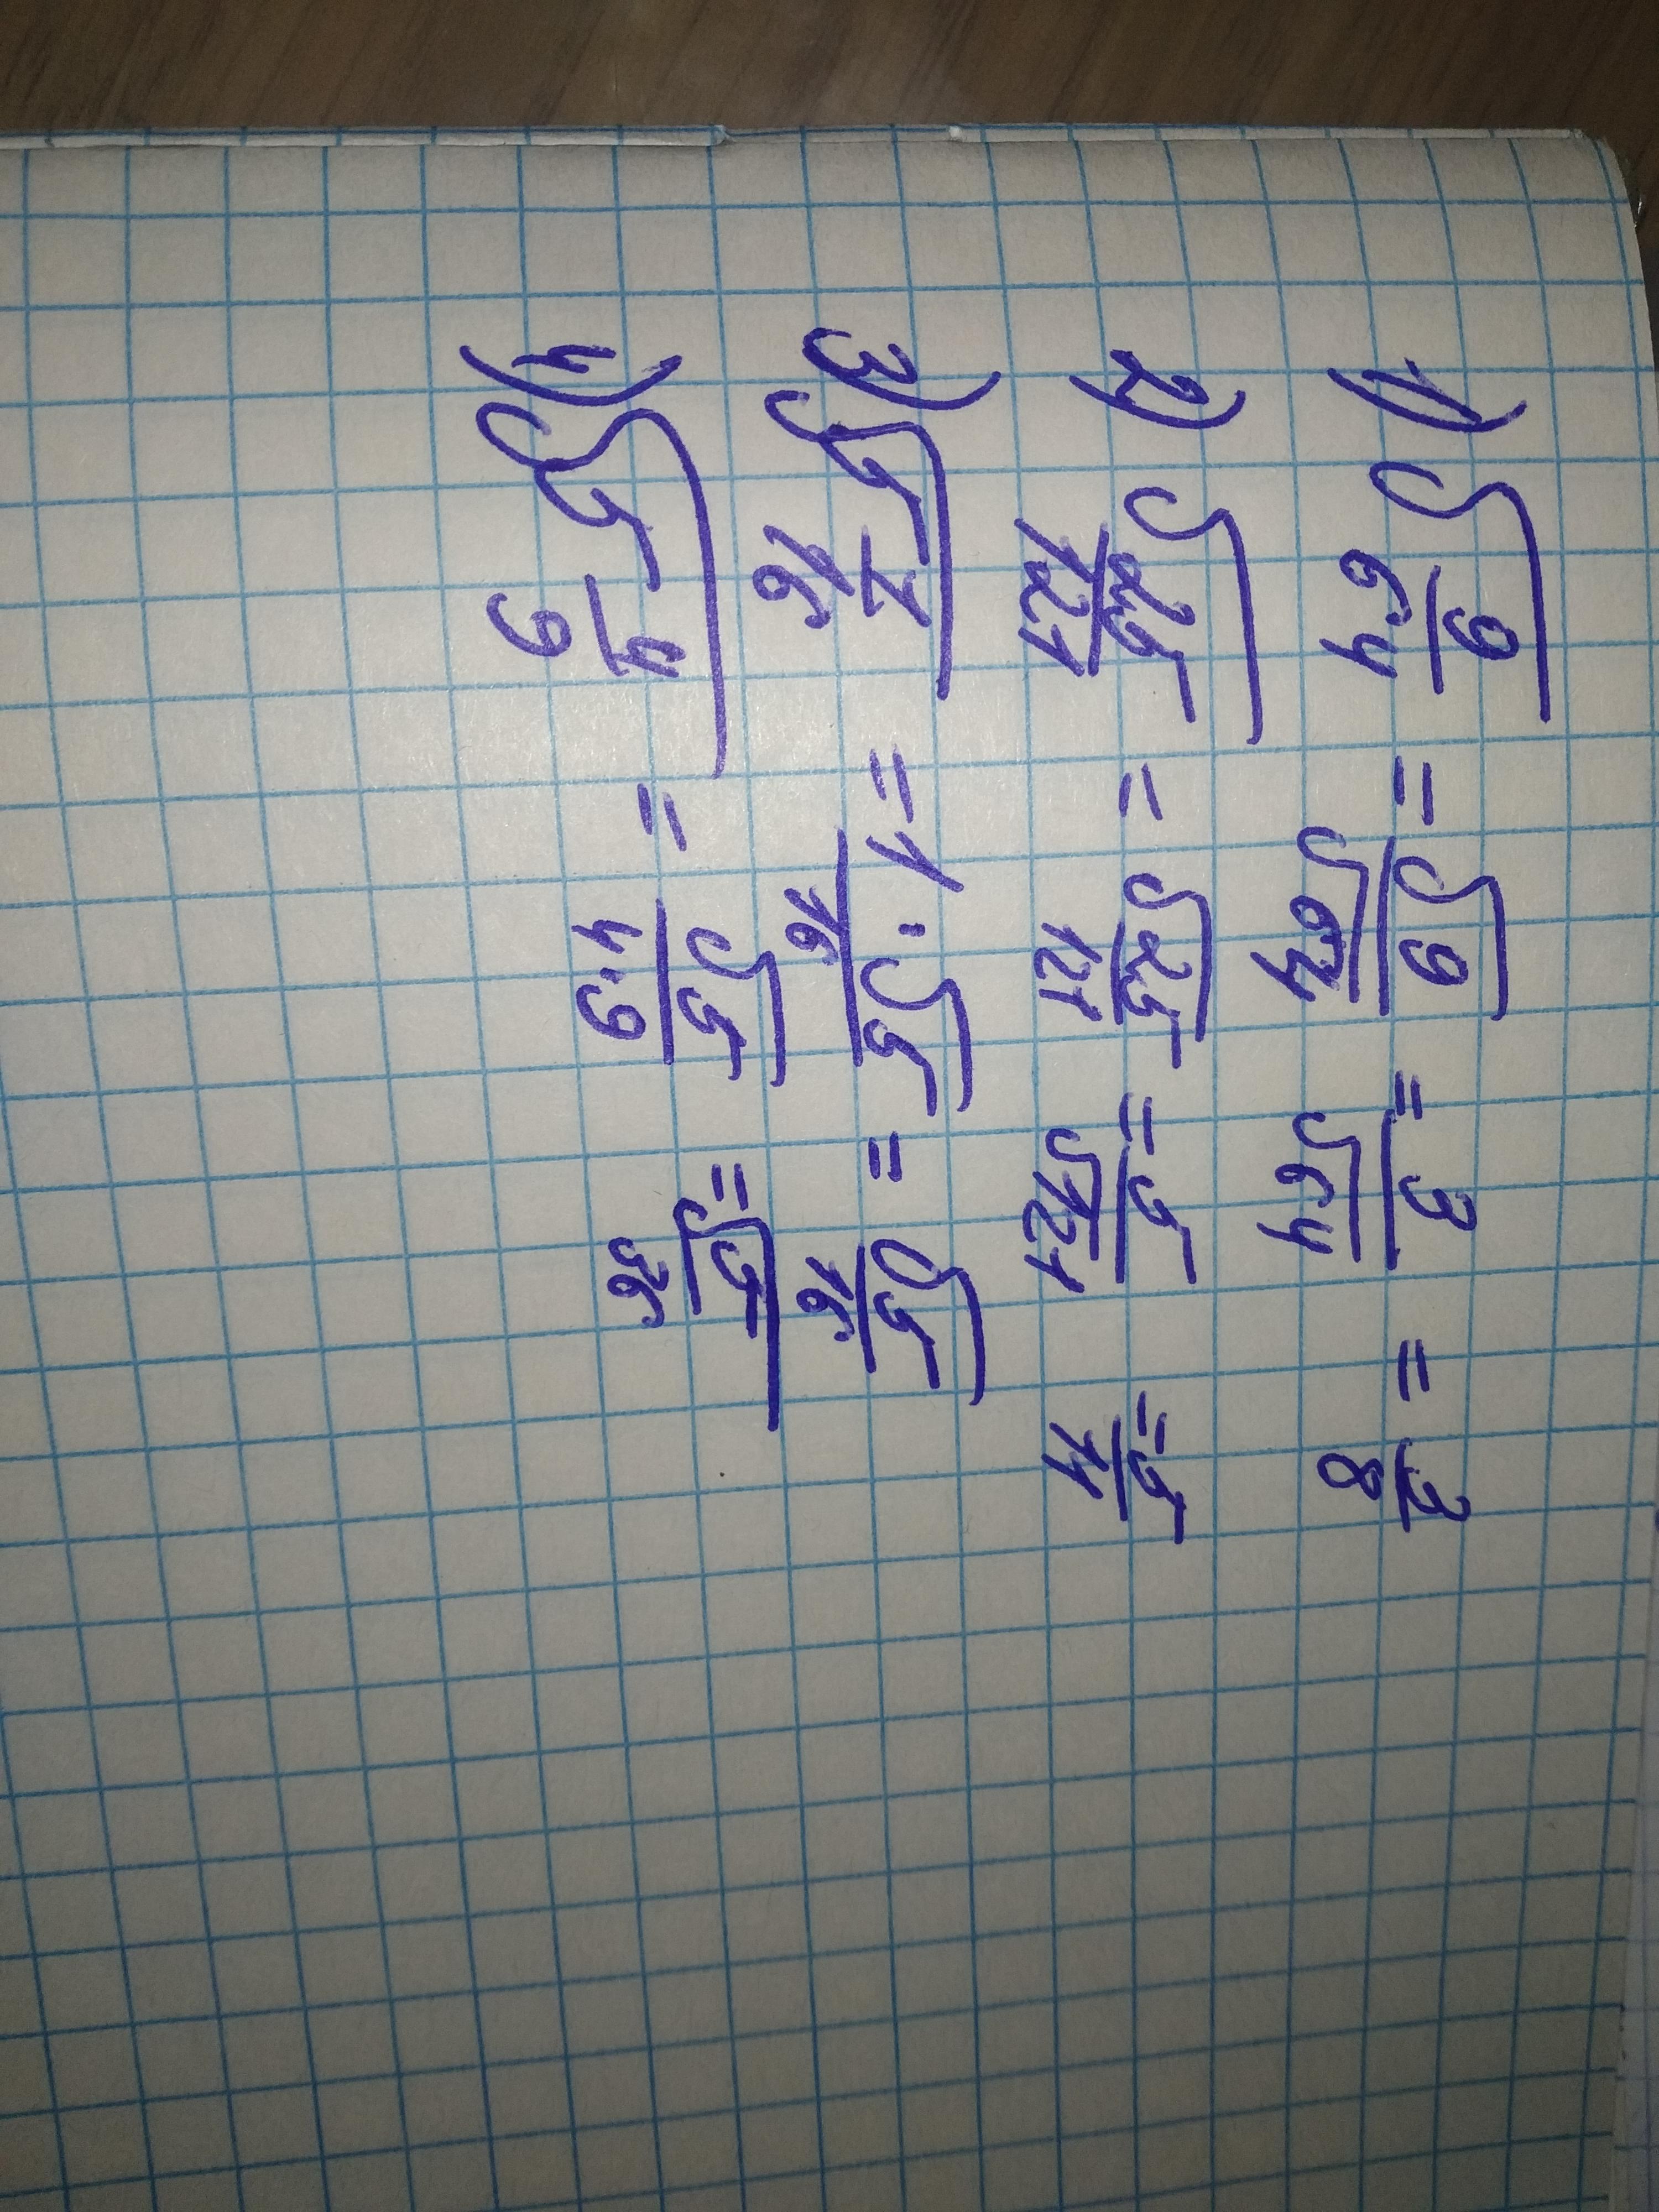 1) √(9/64) = √9/√64 = 3/√64 = 3/8
2) √(25/121) = √25/121 = 5/√121 = 5/11
3) √(5 1/16) = 1·√5/16 = √5/16
4) √(5 4/9) = √5/4·9 = √5/36